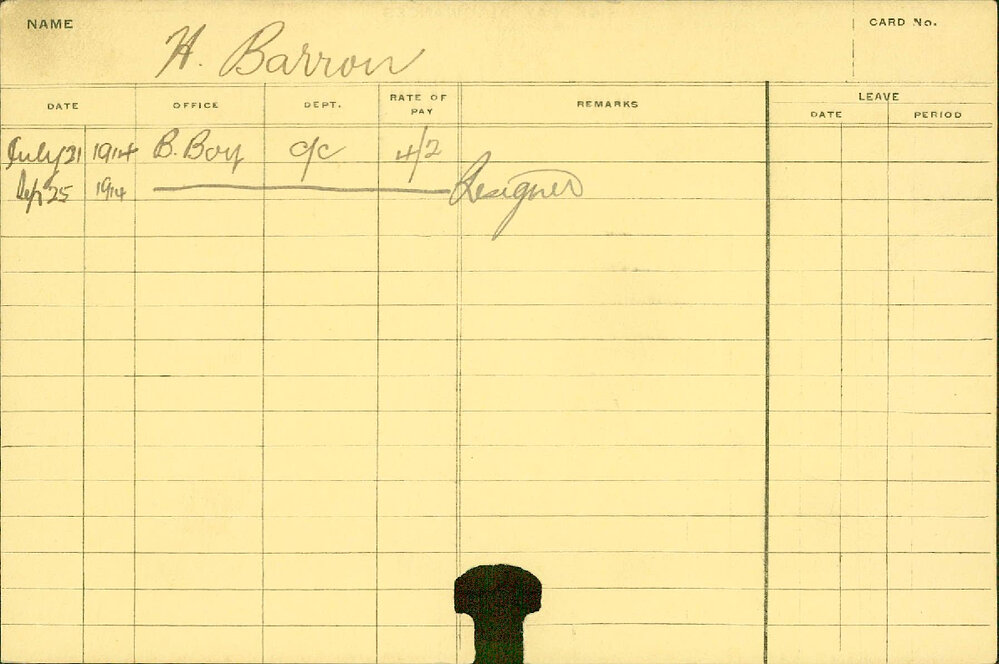 NAME
H. Barron
CARD No.
DATE OFFICE DEPT. RATE OF PAY REMARKS LEAVE
DATE PERIOD
July 31 1914 B. Boy 4/2
Sep 25 1914 Resigned